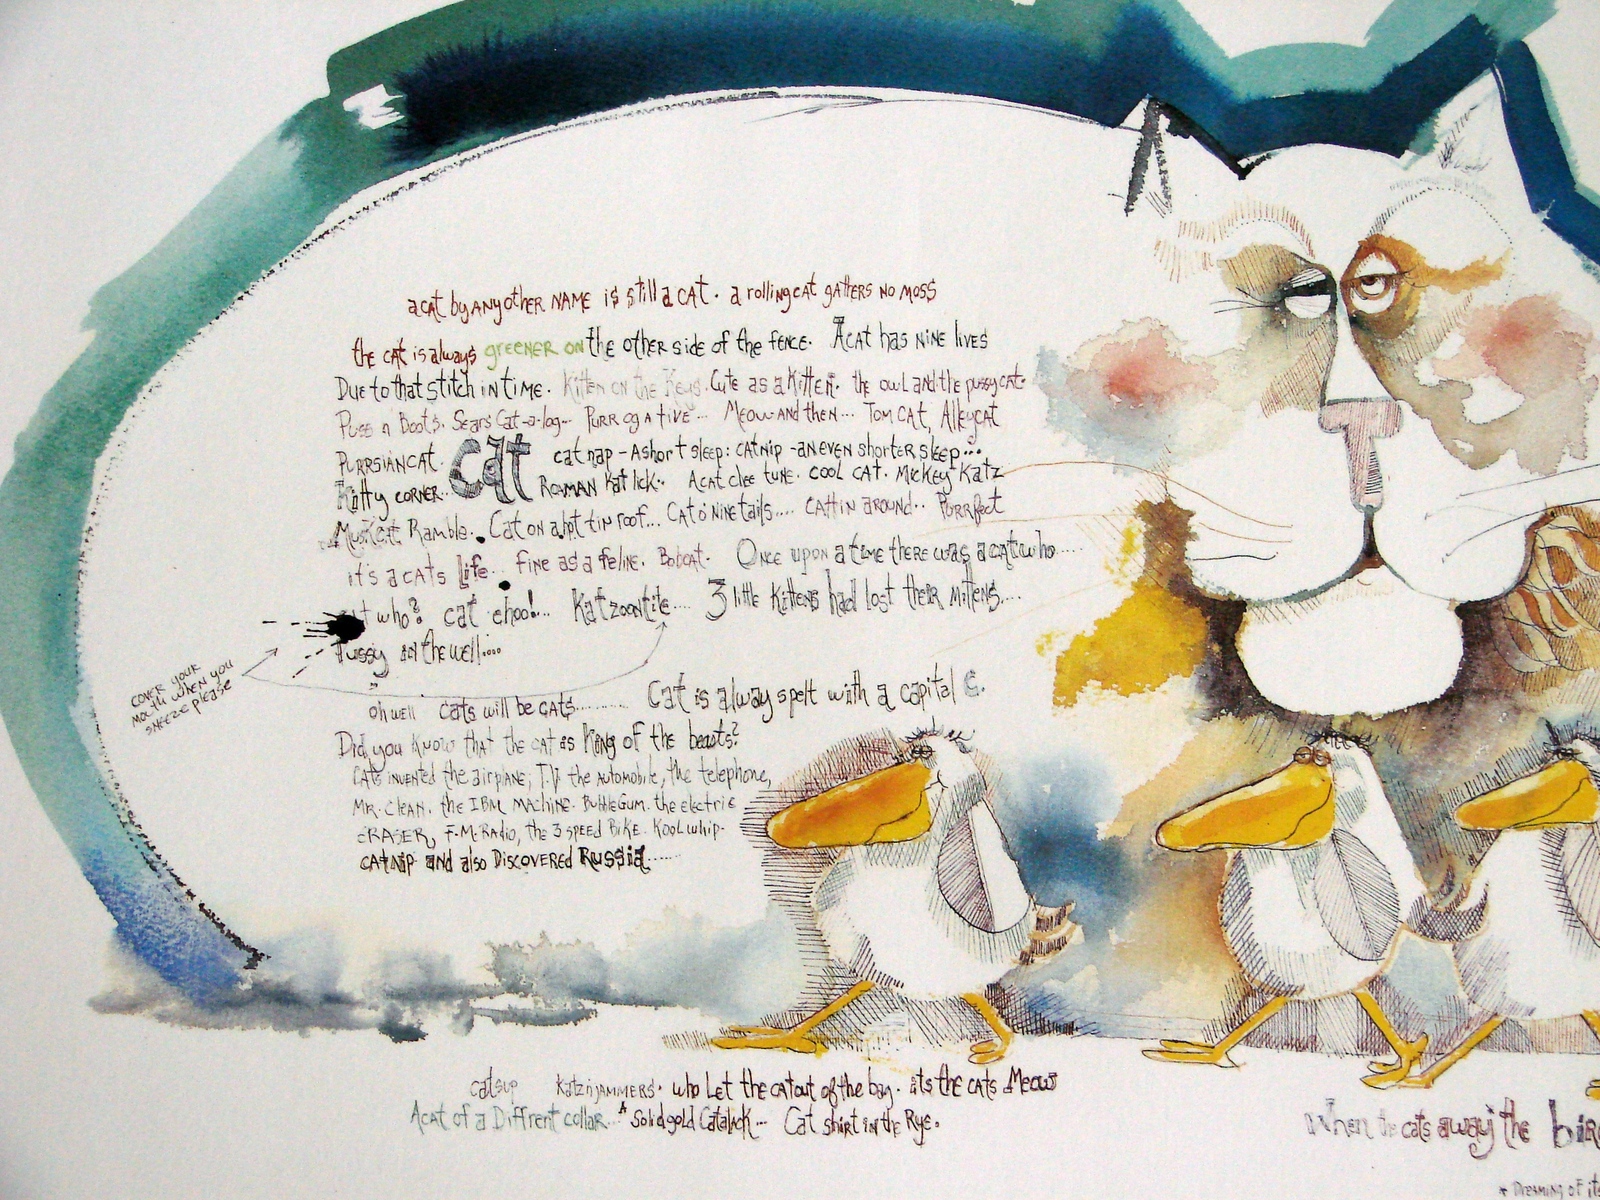 a cat by any other NAME is still a CAT. a rolling cat gathers no moss
the cat is always greener on the other side of the fence. A cat has nine lives
Due to that stitch in time. Kitten on the Keys. Cute as a Kitten. the owl and the pussycat.
Puss n Boots. Sears Cat-a-log... Purrogative... Meow and then... Tom CAT, Alleycat
PURRSIANCAT. cat cat nap - A short sleep: catnip - an even shorter sleep...
Kitty CORNER. ROAMAN Kat lick.. A cat clee tune. cool CAT. Mickey Katz
Muskcat Ramble.. Cat on a hot tin roof... CAT o' Nine tails.... CATTIN AROUND.. Purrfect
it's a CATS Life... Fine as a feline. Bobcat. Once upon a time there was a cat who.....
who? cat choo!... Katzoontite.... 3 little Kittens had lost their mittens....
Pussy in the well....
COVER YOUR
MOUTH WHEN YOU
SNEEZE please
oh well cats will be CATS......... Cat is alway spelt with a capital C.
Did you Know that the cat is King of the beasts?
CATS invented the airplane, T.V. the automobile, the telephone,
MR. CLEAN. the IBM MACHINE. BubbleGum. the electric
ERASER, F.M. Radio, the 3 speed Bike. Kool whip-
CATNIP and also Discovered Russia......
catsup Katznjammers. who Let the cat out of the bag. its the CATS Meow
A cat of a Diffrent collar... A Solid gold Catalack... Cat shirt in the Rye.
When the cats away the bir
* Dreaming of it